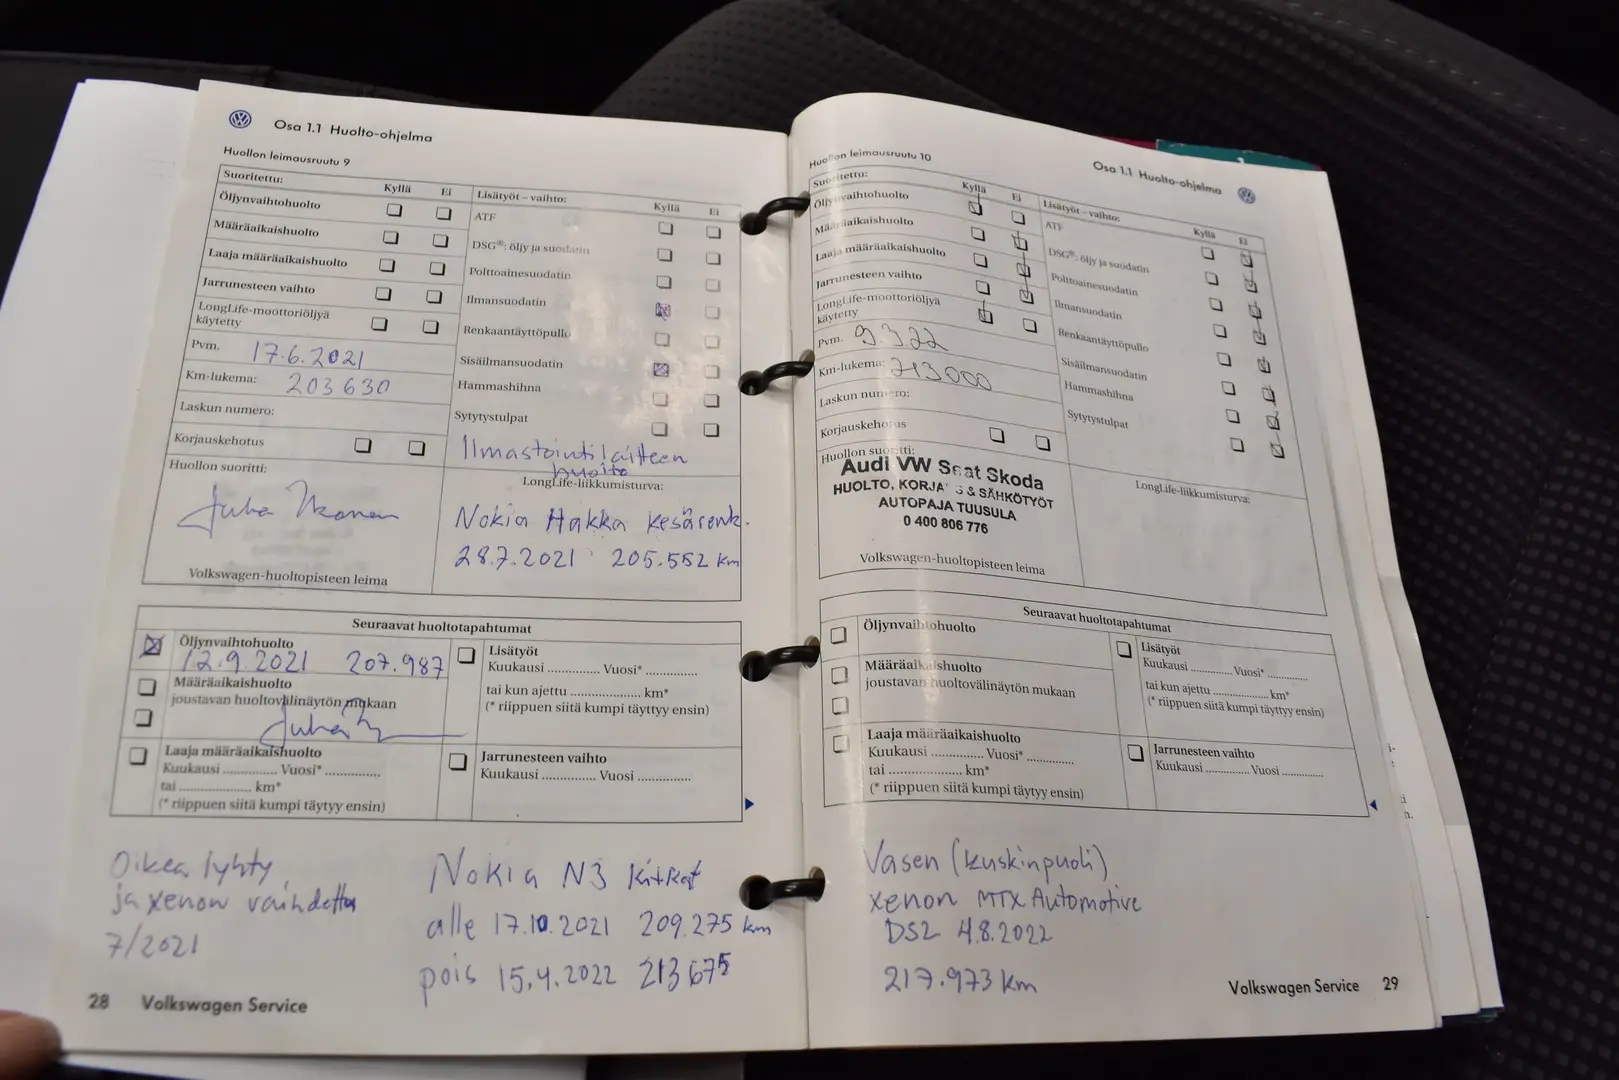 Osa 1.1 Huolto-ohjelma
Huollon leimausruutu 9
Suoritettu:
Kyllä Ei
Öljynvaihtohuolto
Määräaikaishuolto
Laaja määräaikaishuolto
Jarrunesteen vaihto
LongLife-moottoriöljyä
käytetty
Pvm. 17.6.2021
Km-lukema: 203630
Laskun numero:
Korjauskehotus
Huollon suoritti:
Juha
Volkswagen-huoltopisteen leima
Lisätyöt – vaihto:
Kyllä Ei
ATF
DSG®: öljy ja suodatin
Polttoainesuodatin
Ilmansuodatin
Renkaantäyttöpullo
Sisäilmansuodatin
Hammashihna
Sytytystulpat
Ilmastointilaitteen
huolto
LongLife-liikkumisturva:
Nokia Hakka kesärenk.
28.7.2021 205.552 km
Seuraavat huoltotapahtumat
Öljynvaihtohuolto
12.9.2021 207.987
Määräaikaishuolto
joustavan huoltovälinäytön mukaan
Juha
Laaja määräaikaishuolto
Kuukausi ............. Vuosi* .............
tai ................. km*
(* riippuen siitä kumpi täytyy ensin)
Lisätyöt
Kuukausi ............. Vuosi* .............
tai kun ajettu ................. km*
(* riippuen siitä kumpi täytyy ensin)
Jarrunesteen vaihto
Kuukausi ............. Vuosi .............
Oikea lyhty
ja xenon vaihdettu
7/2021
Nokia N3 kitkat
alle 17.10.2021 209.275 km
pois 15.4.2022 213675
28 Volkswagen Service
Osa 1.1 Huolto-ohjelma
Huollon leimausruutu 10
Suoritettu:
Kyllä Ei
Öljynvaihtohuolto
Määräaikaishuolto
Laaja määräaikaishuolto
Jarrunesteen vaihto
LongLife-moottoriöljyä
käytetty
Pvm. 9.3.22
Km-lukema: 213000
Laskun numero:
Korjauskehotus
Huollon suoritti:
Audi VW Seat Skoda
HUOLTO, KORJAUS & SÄHKÖTYÖT
AUTOPAJA TUUSULA
0 400 806 776
Volkswagen-huoltopisteen leima
Lisätyöt – vaihto:
Kyllä Ei
ATF
DSG®: öljy ja suodatin
Polttoainesuodatin
Ilmansuodatin
Renkaantäyttöpullo
Sisäilmansuodatin
Hammashihna
Sytytystulpat
LongLife-liikkumisturva:
Seuraavat huoltotapahtumat
Öljynvaihtohuolto
Määräaikaishuolto
joustavan huoltovälinäytön mukaan
Laaja määräaikaishuolto
Kuukausi ............. Vuosi* .............
tai ................. km*
(* riippuen siitä kumpi täytyy ensin)
Lisätyöt
Kuukausi ............. Vuosi* .............
tai kun ajettu ................. km*
(* riippuen siitä kumpi täytyy ensin)
Jarrunesteen vaihto
Kuukausi ............. Vuosi .............
Vasen (kuskinpuoli)
xenon MTX Automotive
DS2 4.8.2022
217.973 km
Volkswagen Service 29